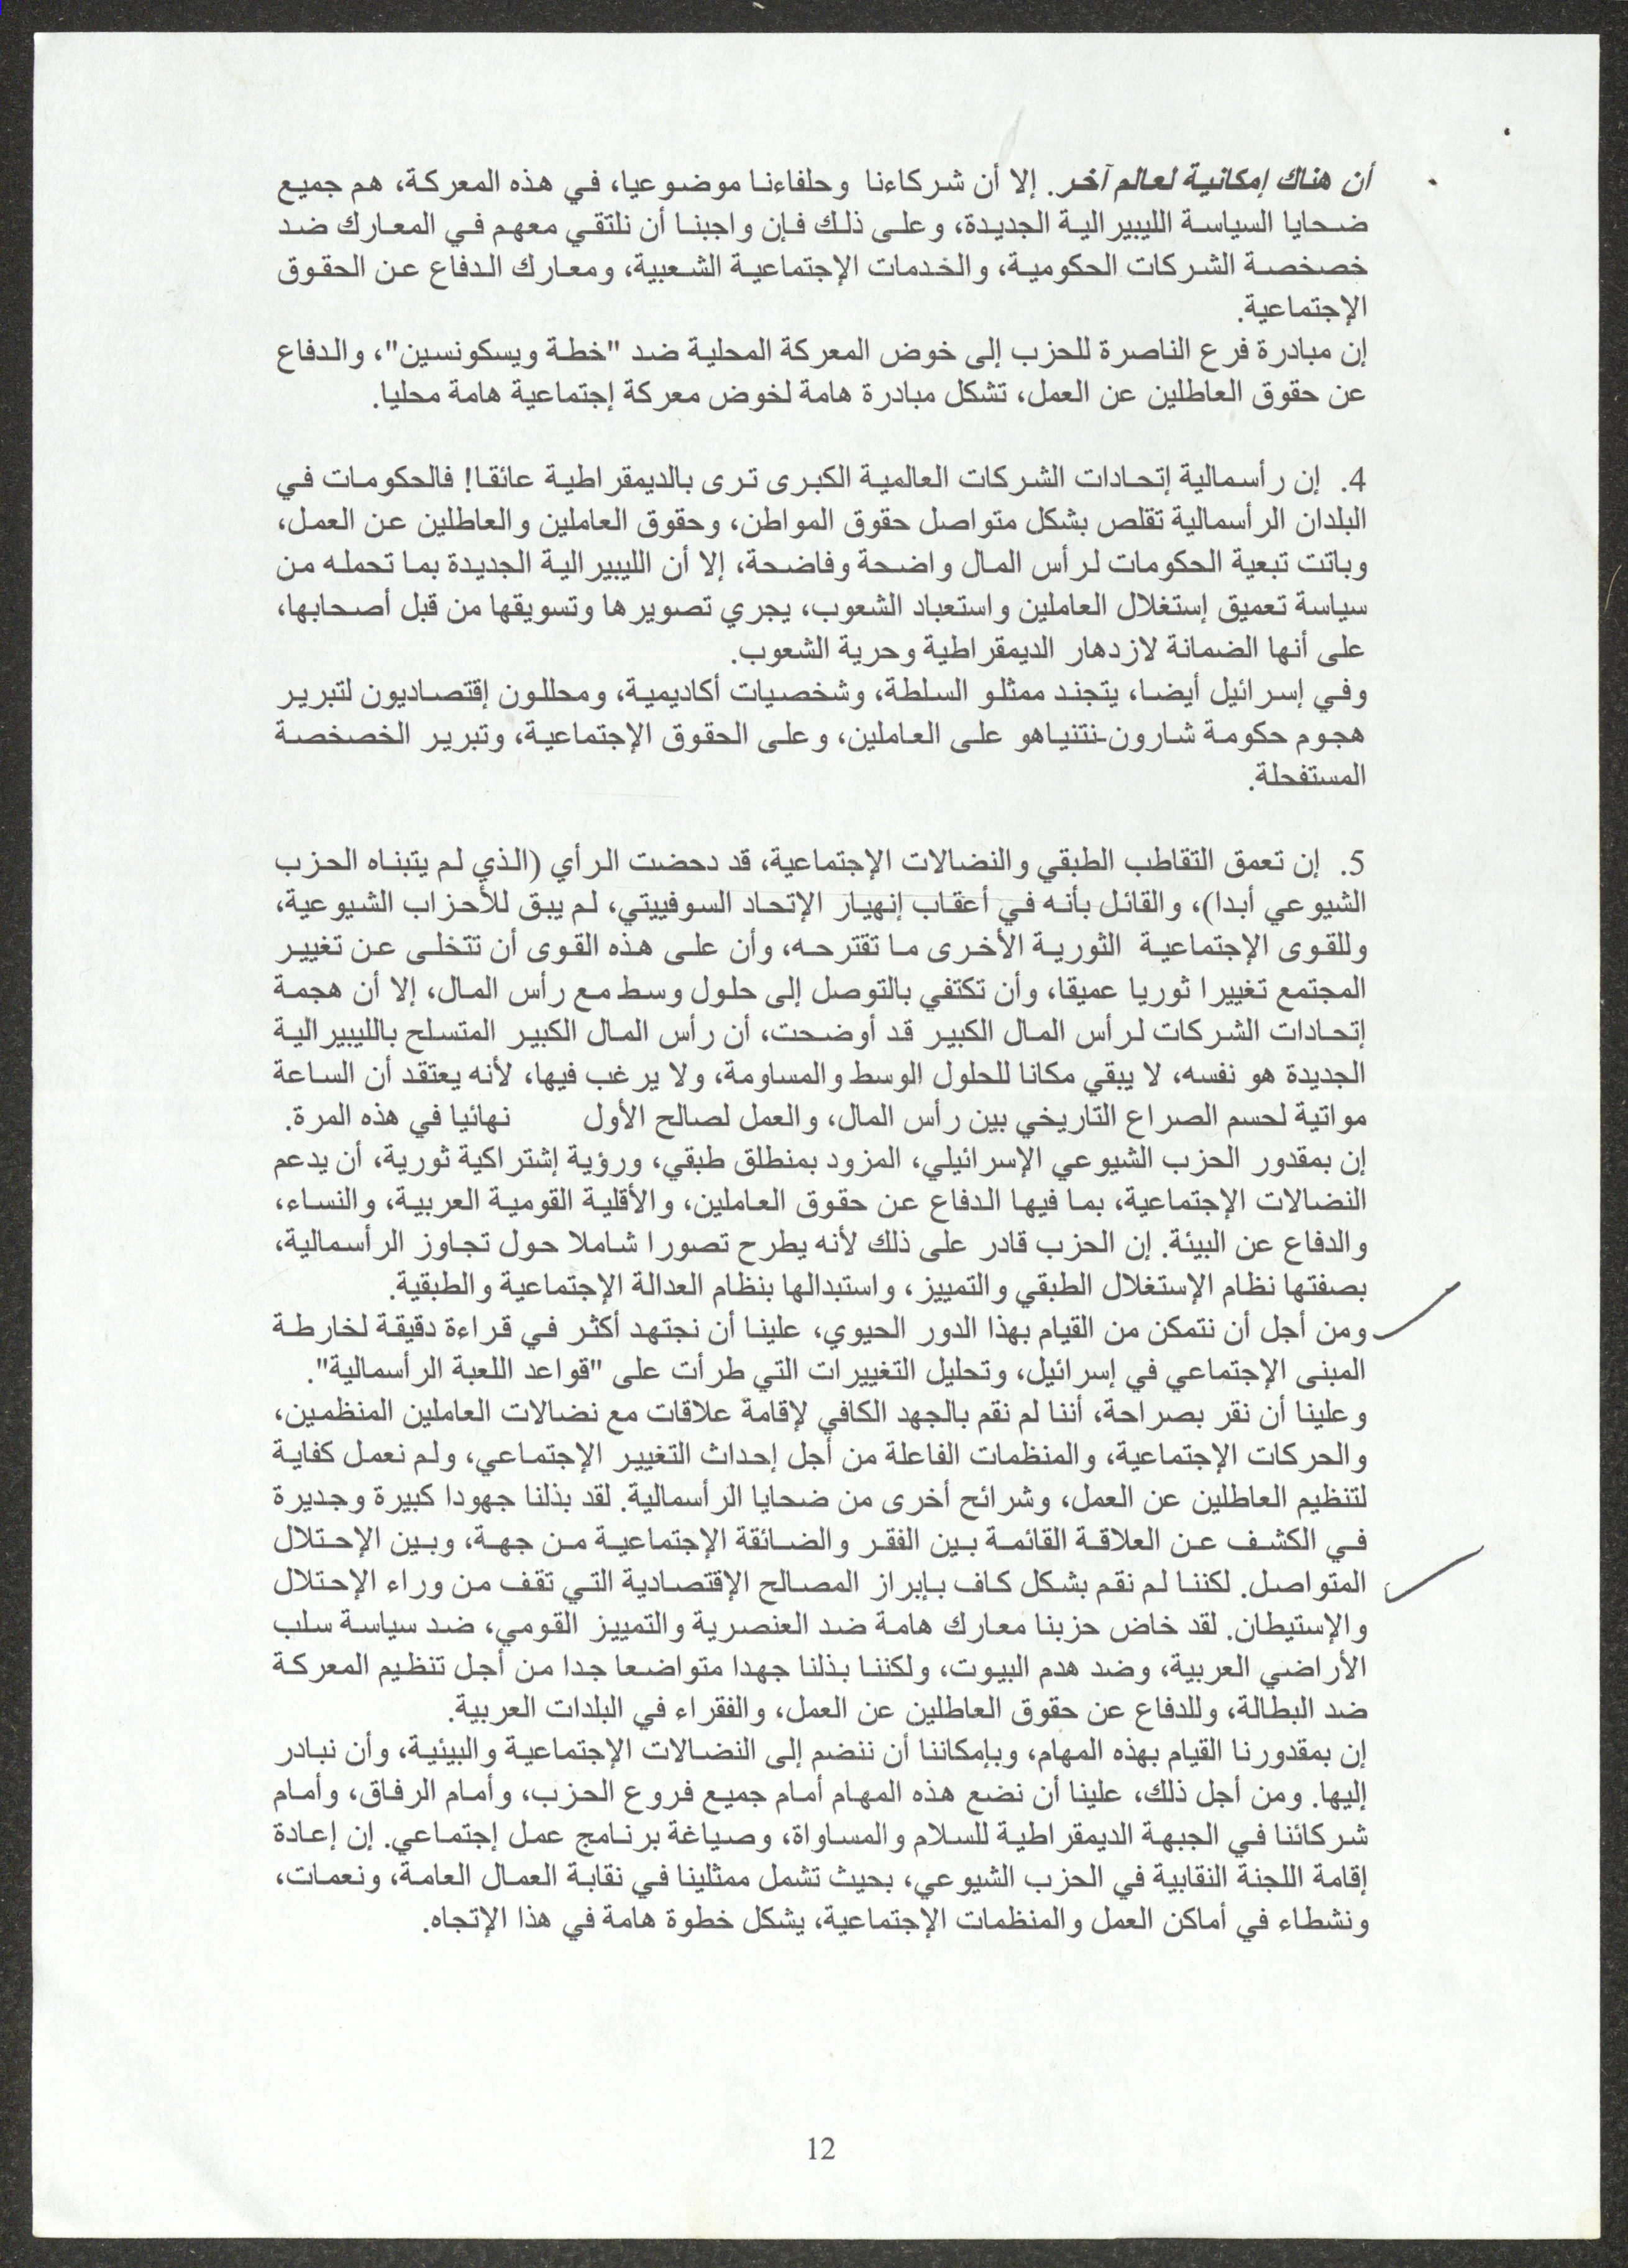 أن هناك إمكانية لعالم آخر. إلا أن شركاءنا وحلفاءنا موضوعيا، في هذه المعركة، هم جميع
ضحايا السياسة الليبيرالية الجديدة، وعلى ذلك فإن واجبنا أن نلتقي معهم في المعارك ضد
خصخصة الشركات الحكومية، والخدمات الإجتماعية الشعبية، ومعارك الدفاع عن الحقوق
الإجتماعية.
إن مبادرة فرع الناصرة للحزب إلى خوض المعركة المحلية ضد "خطة ويسكونسين"، والدفاع
عن حقوق العاطلين عن العمل، تشكل مبادرة هامة لخوض معركة إجتماعية هامة محليا.
4. إن رأسمالية إتحادات الشركات العالمية الكبرى ترى بالديمقراطية عائقا! فالحكومات في
البلدان الرأسمالية تقلص بشكل متواصل حقوق المواطن، وحقوق العاملين والعاطلين عن العمل،
وباتت تبعية الحكومات لرأس المال واضحة وفاضحة، إلا أن الليبيرالية الجديدة بما تحمله من
سياسة تعميق إستغلال العاملين واستعباد الشعوب، يجري تصويرها وتسويقها من قبل أصحابها،
على أنها الضمانة لازدهار الديمقراطية وحرية الشعوب.
وفي إسرائيل أيضا، يتجند ممثلو السلطة، وشخصيات أكاديمية، ومحللون إقتصاديون لتبرير
هجوم حكومة شارون-نتنياهو على العاملين، وعلى الحقوق الإجتماعية، وتبرير الخصخصة
المستفحلة.
5. إن تعمق التقاطب الطبقي والنضالات الإجتماعية، قد دحضت الرأي (الذي لم يتبناه الحزب
الشيوعي أبدا)، والقائل بأنه في أعقاب إنهيار الإتحاد السوفييتي، لم يبق للأحزاب الشيوعية،
وللقوى الإجتماعية الثورية الأخرى ما تقترحه، وأن على هذه القوى أن تتخلى عن تغيير
المجتمع تغييرا ثوريا عميقا، وأن تكتفي بالتوصل إلى حلول وسط مع رأس المال، إلا أن هجمة
إتحادات الشركات لرأس المال الكبير قد أوضحت، أن رأس المال الكبير المتسلح بالليبيرالية
الجديدة هو نفسه، لا يبقي مكانا للحلول الوسط والمساومة، ولا يرغب فيها، لأنه يعتقد أن الساعة
مواتية لحسم الصراع التاريخي بين رأس المال، والعمل لصالح الأول نهائيا في هذه المرة.
إن بمقدور الحزب الشيوعي الإسرائيلي، المزود بمنطلق طبقي، ورؤية إشتراكية ثورية، أن يدعم
النضالات الإجتماعية، بما فيها الدفاع عن حقوق العاملين، والأقلية القومية العربية، والنساء،
والدفاع عن البيئة. إن الحزب قادر على ذلك لأنه يطرح تصورا شاملا حول تجاوز الرأسمالية،
بصفتها نظام الإستغلال الطبقي والتمييز، واستبدالها بنظام العدالة الإجتماعية والطبقية.
ومن أجل أن نتمكن من القيام بهذا الدور الحيوي، علينا أن نجتهد أكثر في قراءة دقيقة لخارطة
المبنى الإجتماعي في إسرائيل، وتحليل التغييرات التي طرأت على "قواعد اللعبة الرأسمالية".
وعلينا أن نقر بصراحة، أننا لم نقم بالجهد الكافي لإقامة علاقات مع نضالات العاملين المنظمين،
والحركات الإجتماعية، والمنظمات الفاعلة من أجل إحداث التغيير الإجتماعي، ولم نعمل كفاية
لتنظيم العاطلين عن العمل، وشرائح أخرى من ضحايا الرأسمالية. لقد بذلنا جهودا كبيرة وجديرة
في الكشف عن العلاقة القائمة بين الفقر والضائقة الإجتماعية من جهة، وبين الإحتلال
المتواصل. لكننا لم نقم بشكل كاف بإبراز المصالح الإقتصادية التي تقف من وراء الإحتلال
والإستيطان. لقد خاض حزبنا معارك هامة ضد العنصرية والتمييز القومي، ضد سياسة سلب
الأراضي العربية، وضد هدم البيوت، ولكننا بذلنا جهدا متواضعا جدا من أجل تنظيم المعركة
ضد البطالة، وللدفاع عن حقوق العاطلين عن العمل، والفقراء في البلدات العربية.
إن بمقدورنا القيام بهذه المهام، وبإمكاننا أن ننضم إلى النضالات الإجتماعية والبيئية، وأن نبادر
إليها. ومن أجل ذلك، علينا أن نضع هذه المهام أمام جميع فروع الحزب، وأمام الرفاق، وأمام
شركائنا في الجبهة الديمقراطية للسلام والمساواة، وصياغة برنامج عمل إجتماعي. إن إعادة
إقامة اللجنة النقابية في الحزب الشيوعي، بحيث تشمل ممثلينا في نقابة العمال العامة، ونعمات،
ونشطاء في أماكن العمل والمنظمات الإجتماعية، يشكل خطوة هامة في هذا الإتجاه.
12